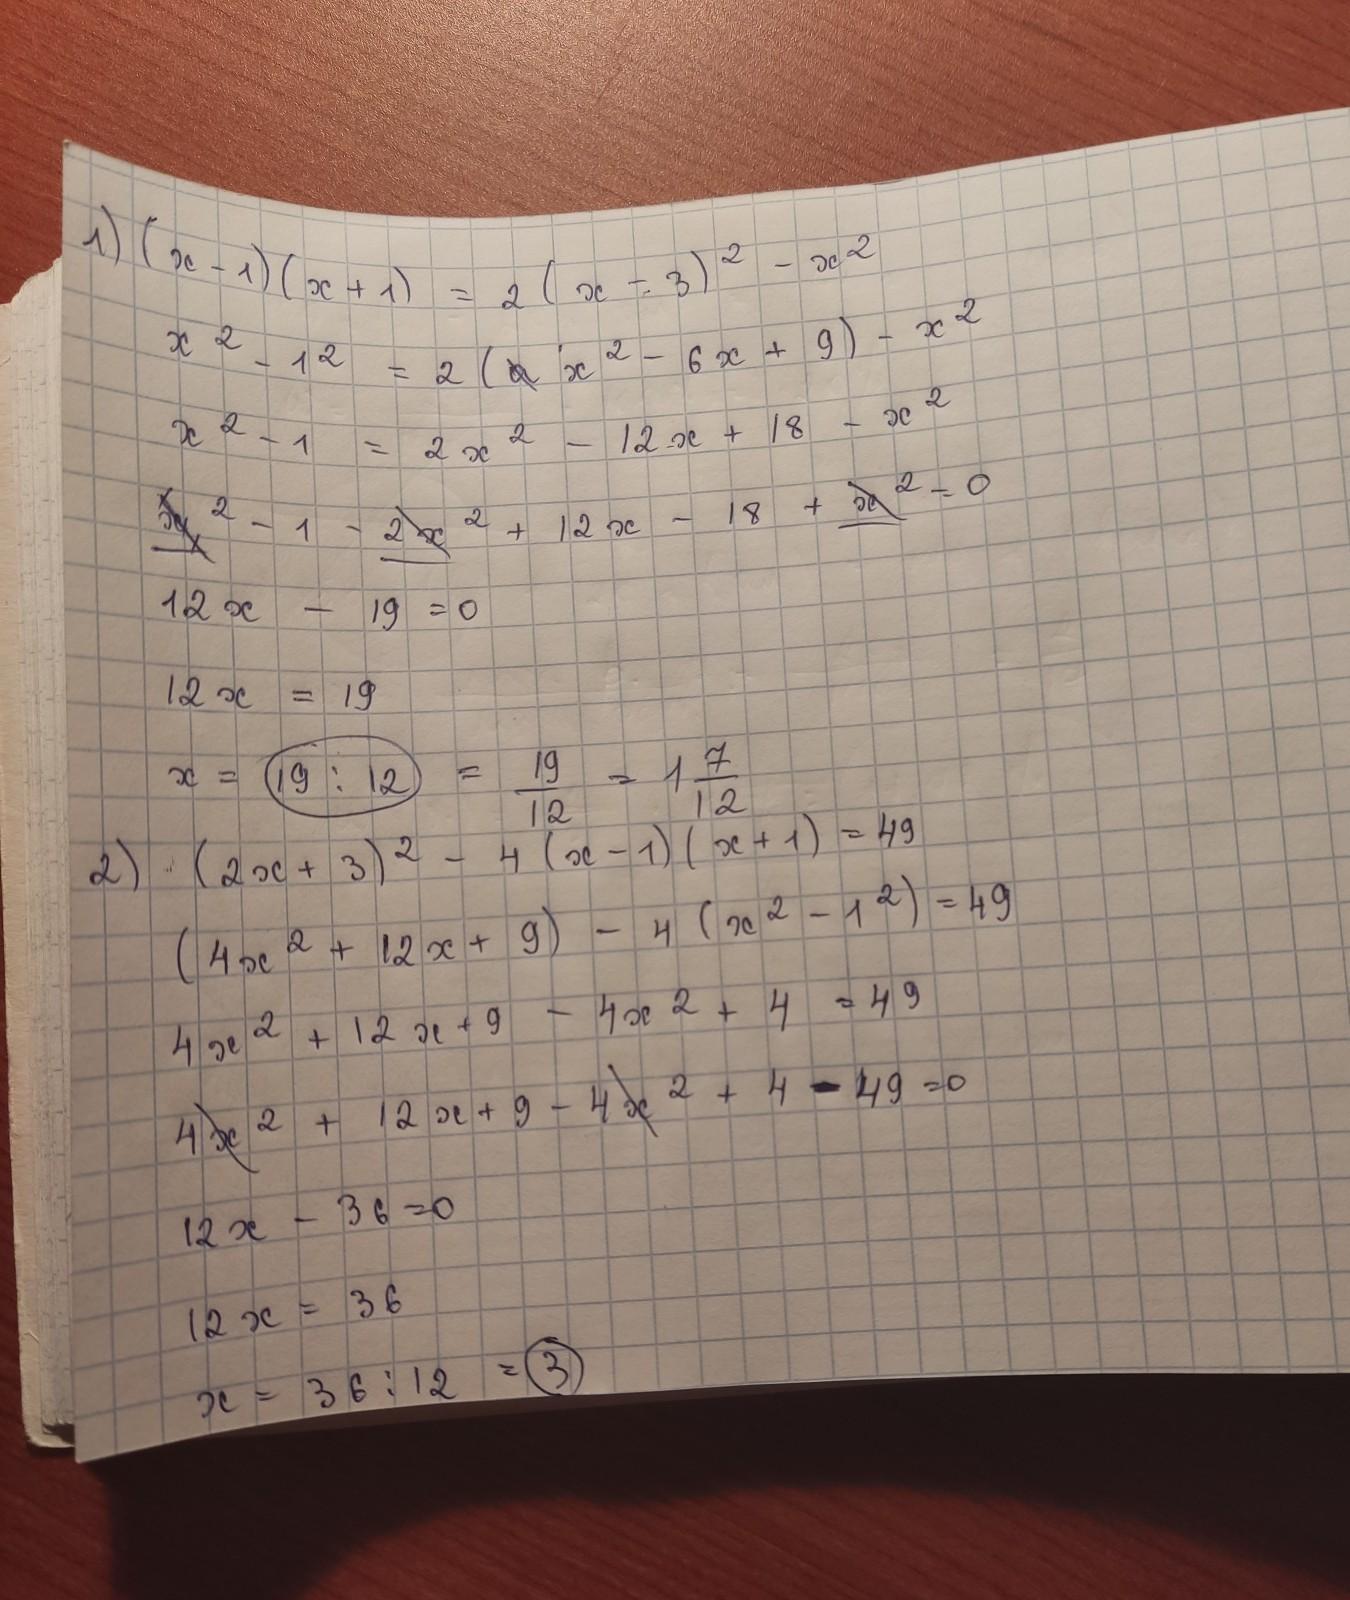 1) (x - 1)(x + 1) = 2(x - 3)² - x²
x² - 1² = 2(x² - 6x + 9) - x²
x² - 1 = 2x² - 12x + 18 - x²
x² - 1 - 2x² + 12x - 18 + x² = 0
12x - 19 = 0
12x = 19
x = 19 : 12 = 19/12 = 1 7/12
2) (2x + 3)² - 4(x - 1)(x + 1) = 49
(4x² + 12x + 9) - 4(x² - 1²) = 49
4x² + 12x + 9 - 4x² + 4 = 49
4x² + 12x + 9 - 4x² + 4 - 49 = 0
12x - 36 = 0
12x = 36
x = 36 : 12 = 3